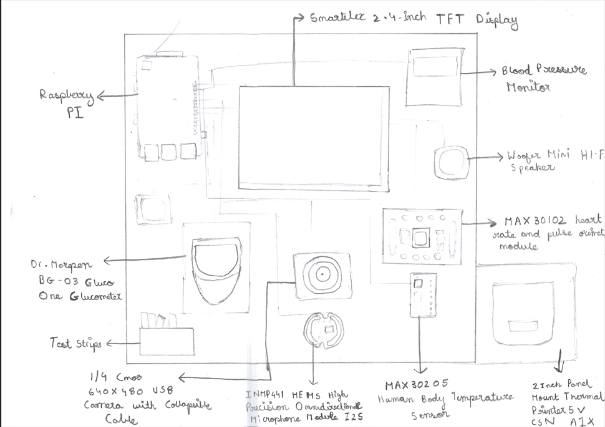 Smartelex 2.4-inch TFT Display
Blood Pressure
Monitor
Raspberry
PI
Woofer Mini HI-F
Speaker
MAX30102 heart
rate and pulse
module
Dr. Morpen
BG-03 Gluco
One Glucometer
Test Strips
1/4 Cmos
640X480 USB
Camera with
Cable
INMP441 MEMS High
Precision Omnidirectional
Microphone Module I2S
MAX30205
Human Body Temperature
Sensor
2 Inch Panel
Mount Thermal
Printer 5V
CSN A1X